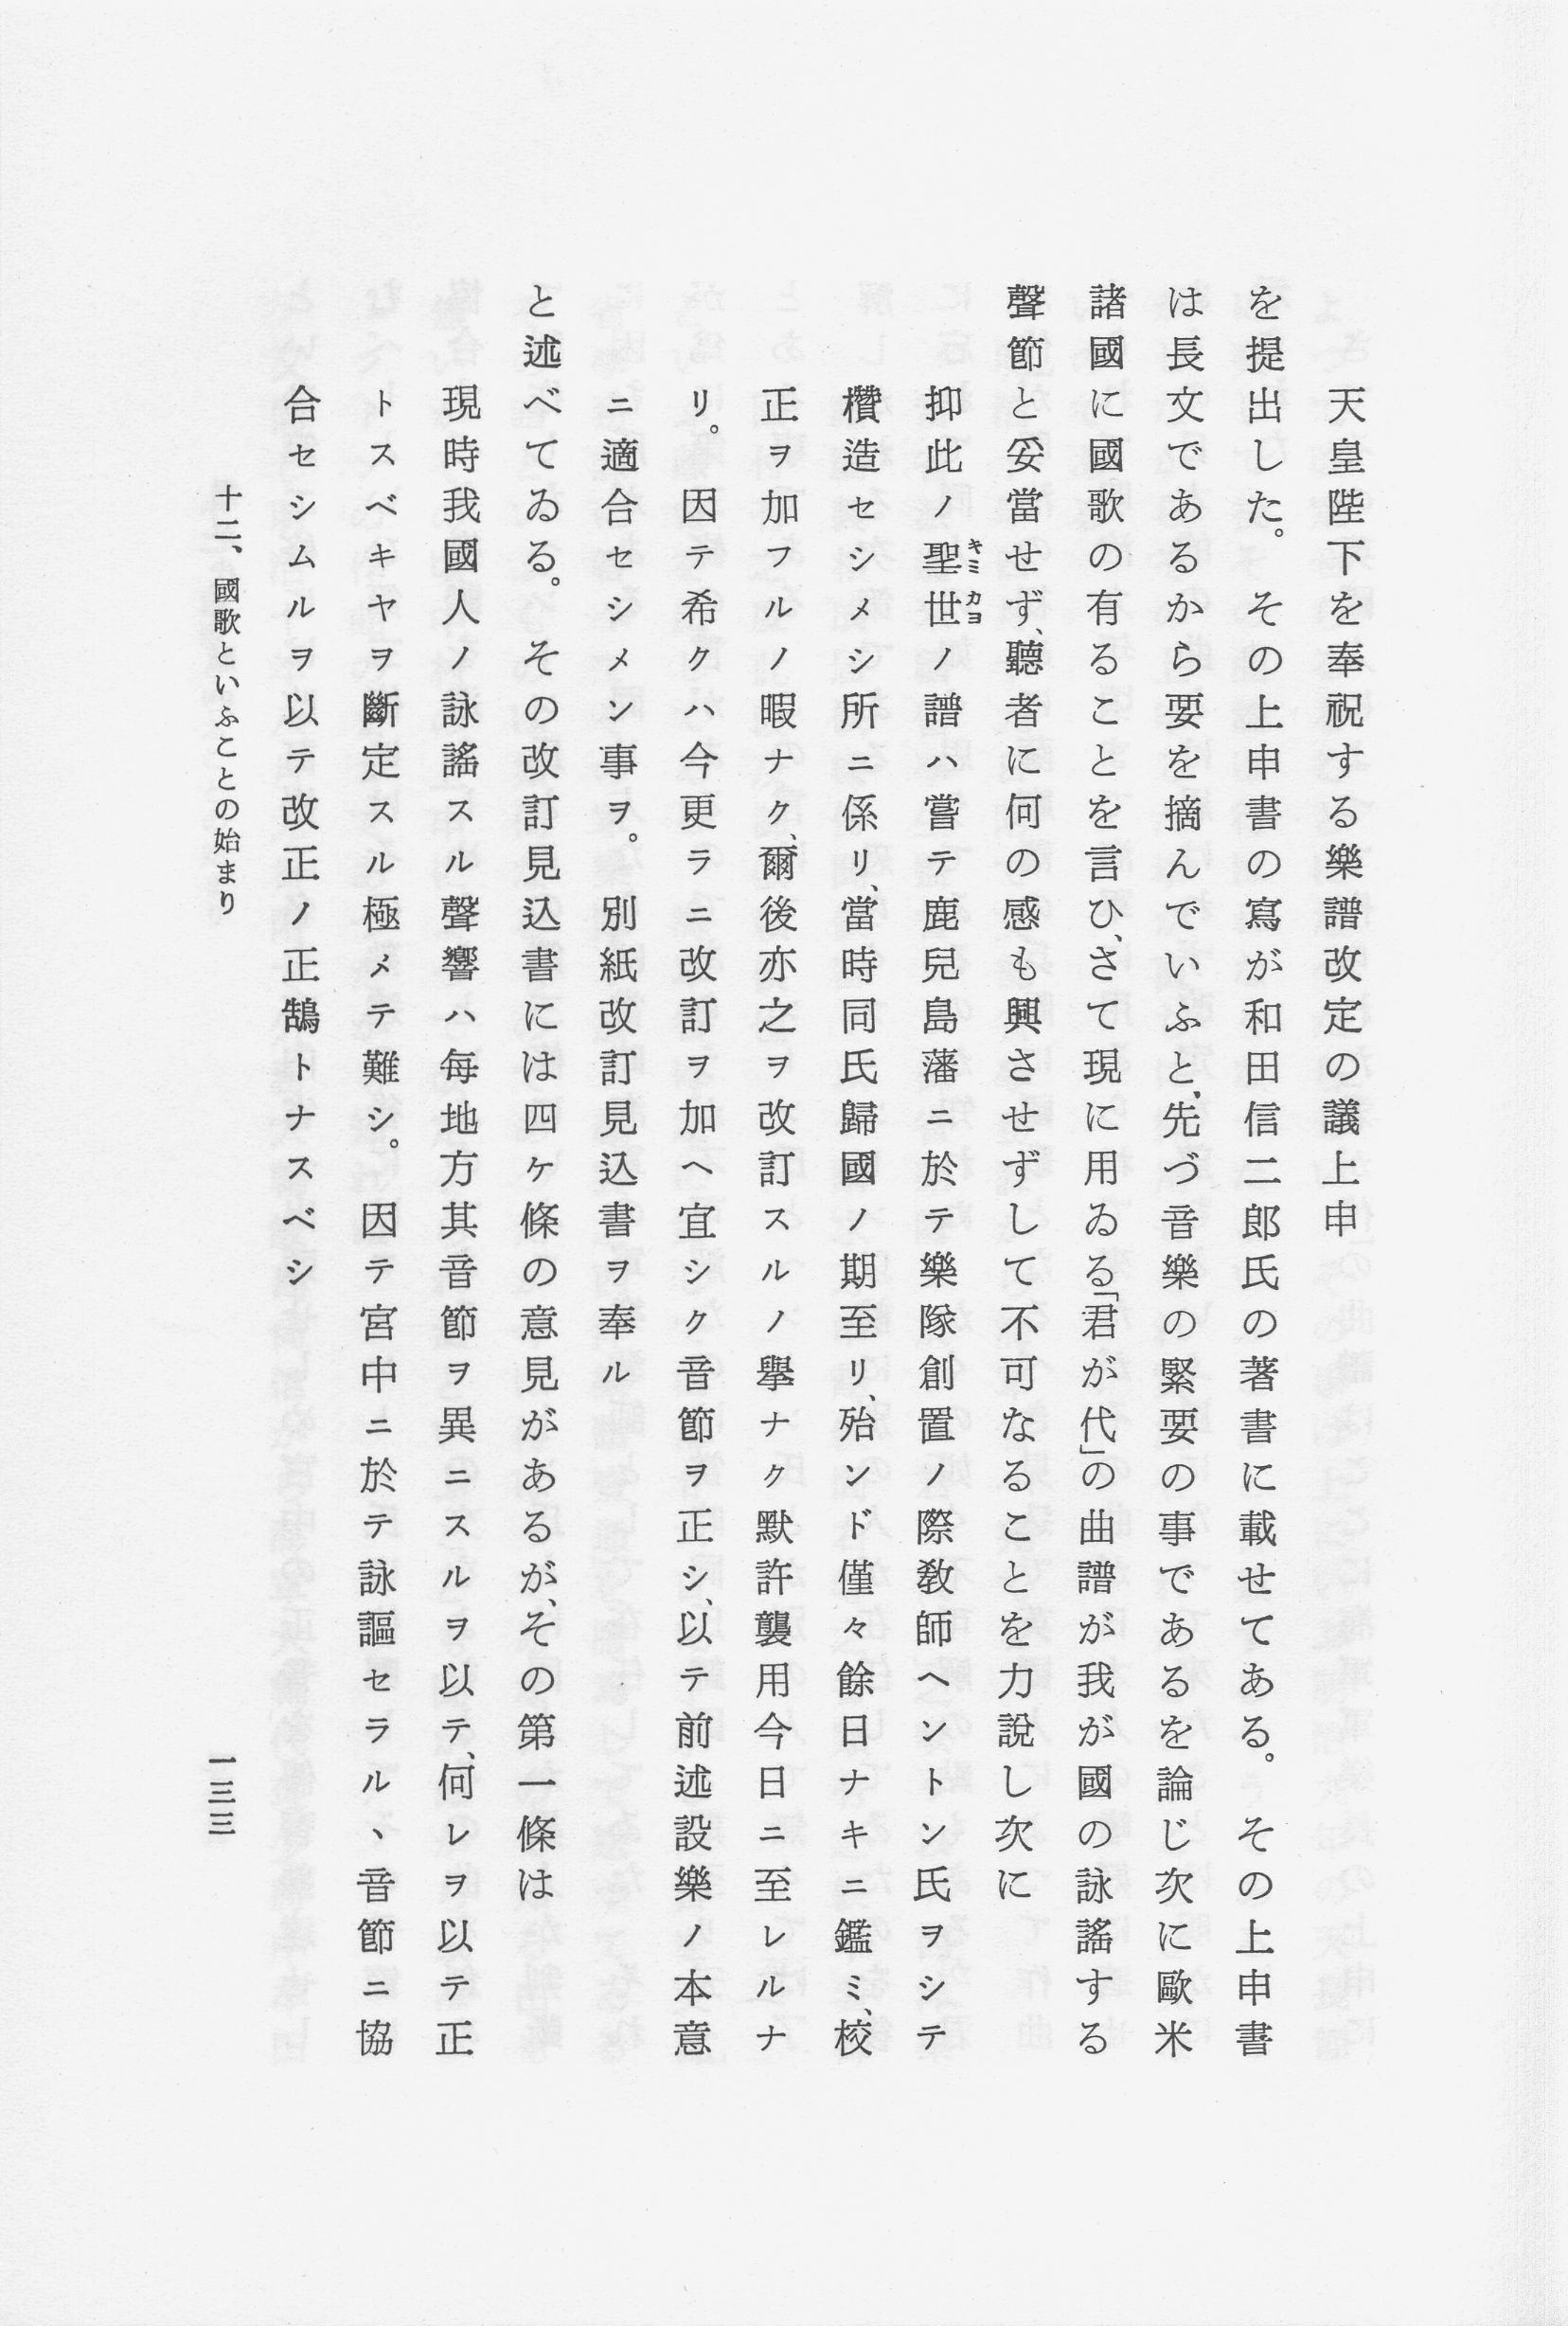 天皇陛下を奉祝する樂譜改定の議上申
を提出した。その上申書の寫が和田信二郎氏の著書に載せてある。その上申書
は長文であるから要を摘んでいふと、先づ音樂の緊要の事であるを論じ次に歐米
諸國に國歌の有ることを言ひ、さて現に用ゐる「君が代」の曲譜が我が國の詠謠する
聲節と妥當せず、聽者に何の感も興させずして不可なることを力說し次に
抑此ノ聖世ノ譜ハ嘗テ鹿兒島藩ニ於テ樂隊創置ノ際敎師ヘントン氏ヲシテ
欑造セシメシ所ニ係リ、當時同氏歸國ノ期至リ、殆ンド僅々餘日ナキニ鑑ミ、校
正ヲ加フルノ暇ナク、爾後亦之ヲ改訂スルノ擧ナク默許襲用今日ニ至レルナ
リ。因テ希クハ今更ラニ改訂ヲ加ヘ宜シク音節ヲ正シ、以テ前述設樂ノ本意
ニ適合セシメン事ヲ。別紙改訂見込書ヲ奉ル
と述べてゐる。その改訂見込書には四ケ條の意見があるが、その第一條は
現時我國人ノ詠謠スル聲響ハ每地方其音節ヲ異ニスルヲ以テ、何レヲ以テ正
トスベキヤヲ斷定スル極メテ難シ。因テ宮中ニ於テ詠謳セラルヽ音節ニ協
合セシムルヲ以テ改正ノ正鵠トナスベシ
十二、國歌といふことの始まり
一三三